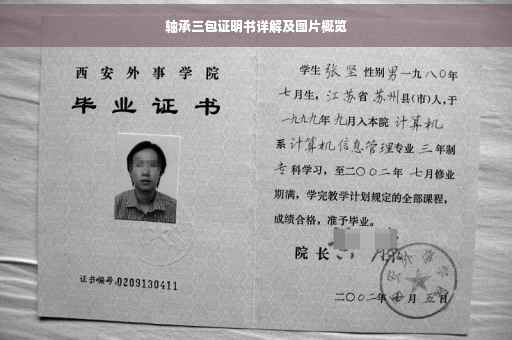 轴承三包证明书详解及图片概览
西安外事学院
毕业证书
证书编号:0209130411
学生张坚性别男一九八〇年
七月生,江苏省苏州县(市)人,于
一九九九年九月入本院计算机
系计算机信息管理专业三年制
专科学习,至二〇〇二年七月修业
期满,学完教学计划规定的全部课程,
成绩合格,准予毕业。
院长
二〇〇二年 月五日